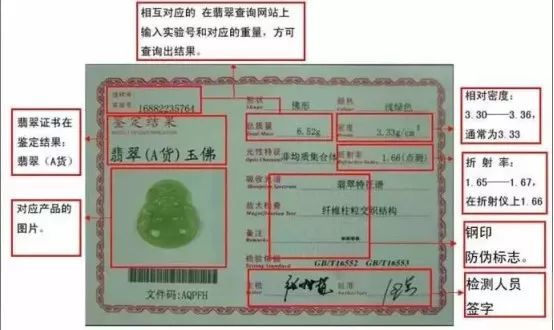 相互对应的 在翡翠查询网站上
输入实验号和对应的重量，方可
查询出结果。
翡翠证书在
鉴定结果：
翡翠（A货）
对应产品的
图片。
相对密度：
3.30——3.36，
通常为3.33
折射率：
1.65——1.67，
在折射仪上1.66
钢印
防伪标志。
检测人员
签字
16882235764
鉴定结果
翡翠(A货)玉佛
文件码:AQPFH
形状
佛形
颜色
浅绿色
总质量
6.52g
密度
3.33g/cm³
光性特征
非均质集合体
折射率
1.66(点测)
吸收光谱
翡翠特征谱
放大检查
纤维柱粒交织结构
备注
Remarks
****
检验依据
GB/T16552 GB/T16553
主检
批准